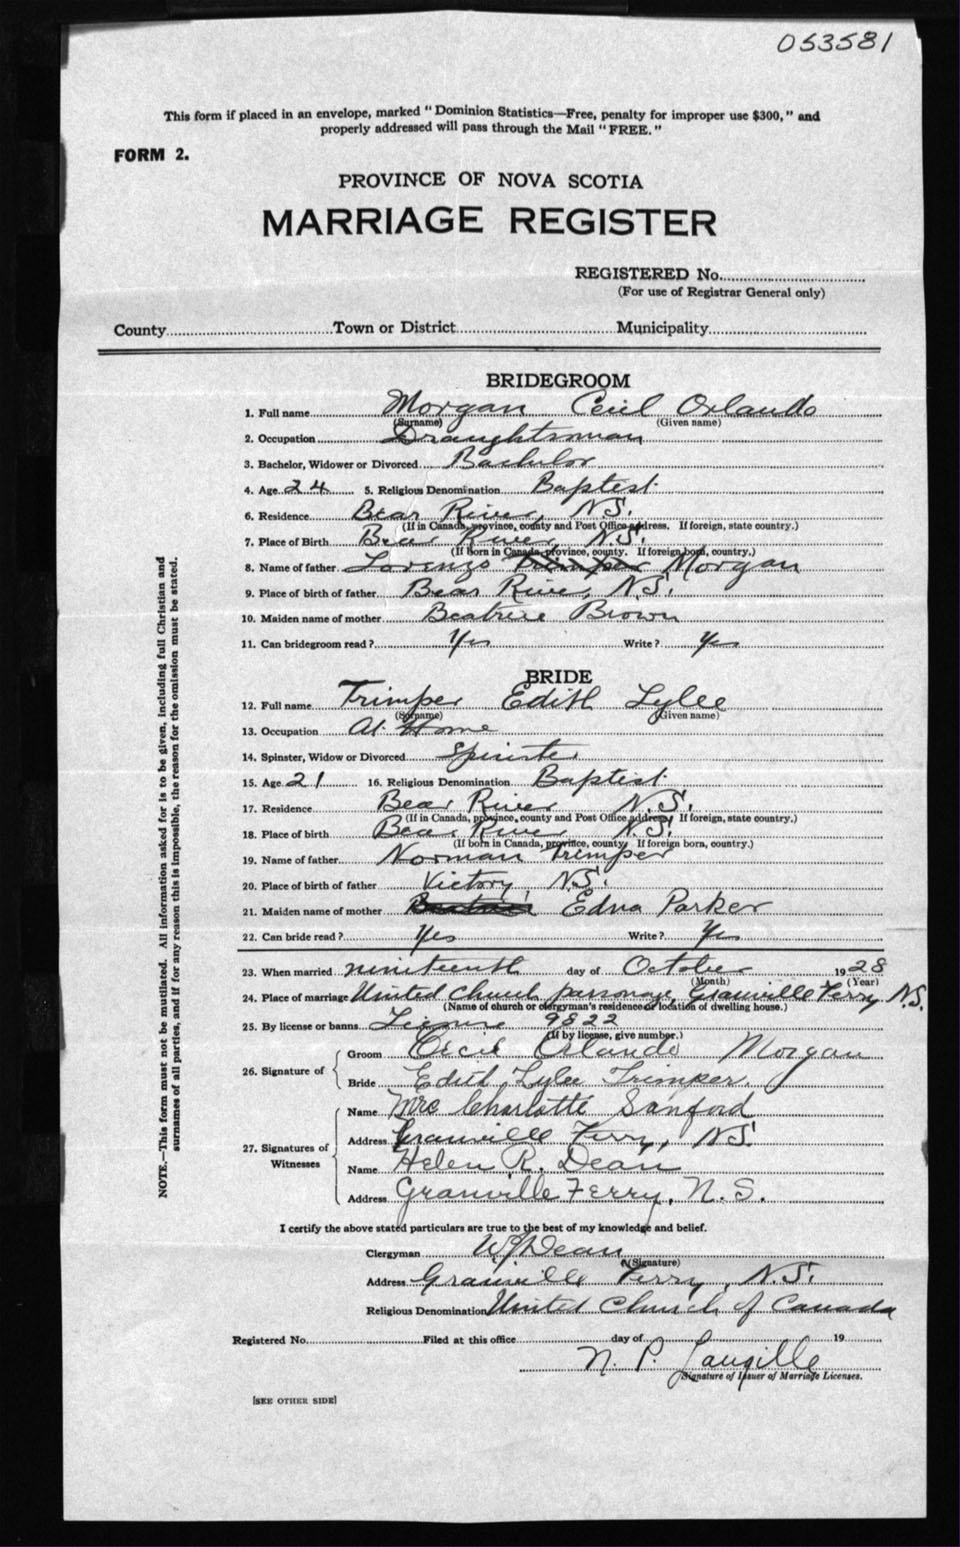 053581
This form if placed in an envelope, marked "Dominion Statistics—Free, penalty for improper use $300," and
properly addressed will pass through the Mail "FREE."
FORM 2.
PROVINCE OF NOVA SCOTIA
MARRIAGE REGISTER
REGISTERED No.
(For use of Registrar General only)
County Town or District Municipality
BRIDEGROOM
1. Full name Morgan Cecil Orlando
(Surname) (Given name)
2. Occupation Draughtsman
3. Bachelor, Widower or Divorced Bachelor
4. Age 24 5. Religious Denomination Baptist
6. Residence Bear River, N.S.
(If in Canada, province, county and Post Office address. If foreign, state country.)
7. Place of Birth Bear River, N.S.
(If Born in Canada, province, county. If foreign born, country.)
8. Name of father Lorenzo Trimper Morgan
9. Place of birth of father Bear River, N.S.
10. Maiden name of mother Beatrice Brown
11. Can bridegroom read? Yes Write? Yes
BRIDE
12. Full name Trimper Edith Lylee
(Surname) (Given name)
13. Occupation At Home
14. Spinster, Widow or Divorced Spinster
15. Age 21 16. Religious Denomination Baptist
17. Residence Bear River N.S.
(If in Canada, province, county and Post Office address. If foreign, state country.)
18. Place of birth Bear River N.S.
(If born in Canada, province, county. If foreign born, country.)
19. Name of father Norman Trimper
20. Place of birth of father Victory, N.S.
21. Maiden name of mother Beatrice Edna Parker
22. Can bride read? Yes Write? Yes
23. When married nineteenth day of October 1928
(Month) (Year)
24. Place of marriage United Church parsonage, Granville Ferry N.S.
(Name of church or clergyman's residence or location of dwelling house.)
25. By license or banns License 9822
(If by license, give number.)
26. Signature of
Groom Cecil Orlando Morgan
Bride Edith Lylee Trimper.
27. Signatures of Witnesses
Name Mrs Charlotte Sanford
Address Granville Ferry, N.S.
Name Helen R. Dean
Address Granville Ferry, N.S.
I certify the above stated particulars are true to the best of my knowledge and belief.
Clergyman WJ Dean
(Signature)
Address Granville Ferry, N.S.
Religious Denomination United Church of Canada
Registered No. Filed at this office day of 19
N. P. Langille
Signature of Issuer of Marriage Licenses.
[SEE OTHER SIDE]
NOTE.—This form must not be mutilated. All information asked for is to be given, including full Christian and
surnames of all parties, and if for any reason this is impossible, the reason for the omission must be stated.